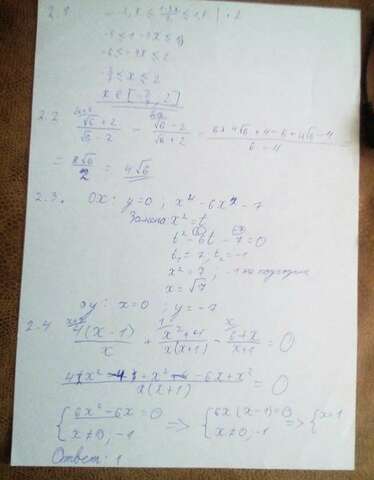 2.1 -2,5 ≤ (1-3x)/2 ≤ 1,5 | ·2
-5 ≤ 1-3x ≤
-6 ≤ -3x ≤ 2
-2/3 ≤ x ≤ 2
x ∈ [-2/3, 2]
2.2 (√6+2)/(√6-2) - (√6-2)/(√6+2) = (6+4√6+4-6+4√6-4)/(6-4)
= 8√6/2 = 4√6
2.3. Ox: y=0; x⁴-6x²-7
Замена: x²=t
t²-6t-7=0
t₁=7, t₂=-1
x²=7, -1 не подходит
x=√7
Oy: x=0; y=-7
2.4 4(x-1)/x + (x²+4)/(x(x+1)) - (6+x)/(x+1) = 0
(4x²-4+x²+4-6x+x²)/(x(x+1)) = 0
{6x²-6x=0 => {6x(x-1)=0 => {x=1
{x≠0,-1 {x≠0,-1
Ответ: 1